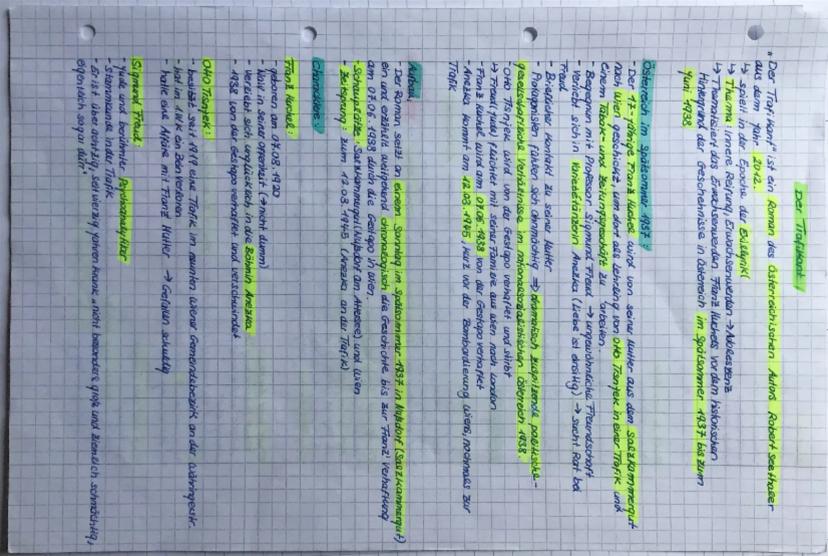 Der Trafikant
„Der Trafikant" ist ein Roman des österreichischen Autors Robert Seethaler
aus dem Jahr 2012.
↳ spielt in der Epoche der
↳ Thema: innere Reifung, Erwachsenwerden → Adoleszenz
↳ Thematisiert das Erwachsenwerden Franz Huchels vor dem historischen
Hintergrund der Geschehnisse in Österreich im Spätsommer 1937 bis zum
Juni 1938
Österreich im Spätsommer 1937:
Der 17-jährige Franz Huchel wird von seiner Mutter aus dem Salzkammergut
nach Wien geschickt, um dort als Lehrling von Otto Trsnjek in einer Trafik und
einem Tabak- und Zeitungsgeschäft zu arbeiten
- Begegnung mit Professor Sigmund Freud → ungewöhnliche Freundschaft
- verliebt sich in Varietétänzerin Anezka (Liebe ist einseitig) → sucht Rat bei
Freud
- Brieflicher Kontakt zu seiner Mutter
- Protagonisten fühlen sich ohnmächtig → dramatisch zuspitzende politische-
gesellschaftliche Verhältnisse im nationalsozialistischen Österreich 1938.
Otto Trsnjek wird von der Gestapo verhaftet und stirbt
↳ Freud (Jude) flüchtet mit seiner Familie aus Wien nach London
- Franz Huchel wird am 07.06.1938 von der Gestapo verhaftet
- Anezka kommt am 12.03.1945, kurz vor der Bombardierung Wiens, nochmals zur
Trafik
Aufbau
- Der Roman setzt an einem Sonntag im Spätsommer 1937 in Nußdorf (Salzkammergut)
ein und erzählt aufbauend chronologisch die Geschichte bis zur Franz' Verhaftung
am 07.06.1938 durch die Gestapo in Wien.
- Schauplätze: Salzkammergut (Nußdorf am Attersee) und Wien
- Zeitsprung: zum 12.03.1945 (Anezka an der Trafik)
Charaktere:
Franz Huchel:
- geboren am 07.08.1920
- Naiv in seiner Offenheit (→ nicht dumm)
- Verliebt sich unglücklich in die Böhmin Anezka
- 1938 von der Gestapo verhaftet und verschwindet
Otto Trsnjek:
- besitzt seit 1919 eine Trafik im neunten Wiener Gemeindebezirk an der Währingerstr.
- hat im 1.WK ein Bein verloren
- hatte eine Affäre mit Franz Mutter → Gefallen schuldig
Sigmund Freud:
- Jude und berühmter Psychoanalytiker
- Stammkunde in der Trafik
- Er ist über achtzig, seit vierzig Jahren krank „nicht besonders groß und ziemlich schmächtig,
eigentlich sogar dürr"